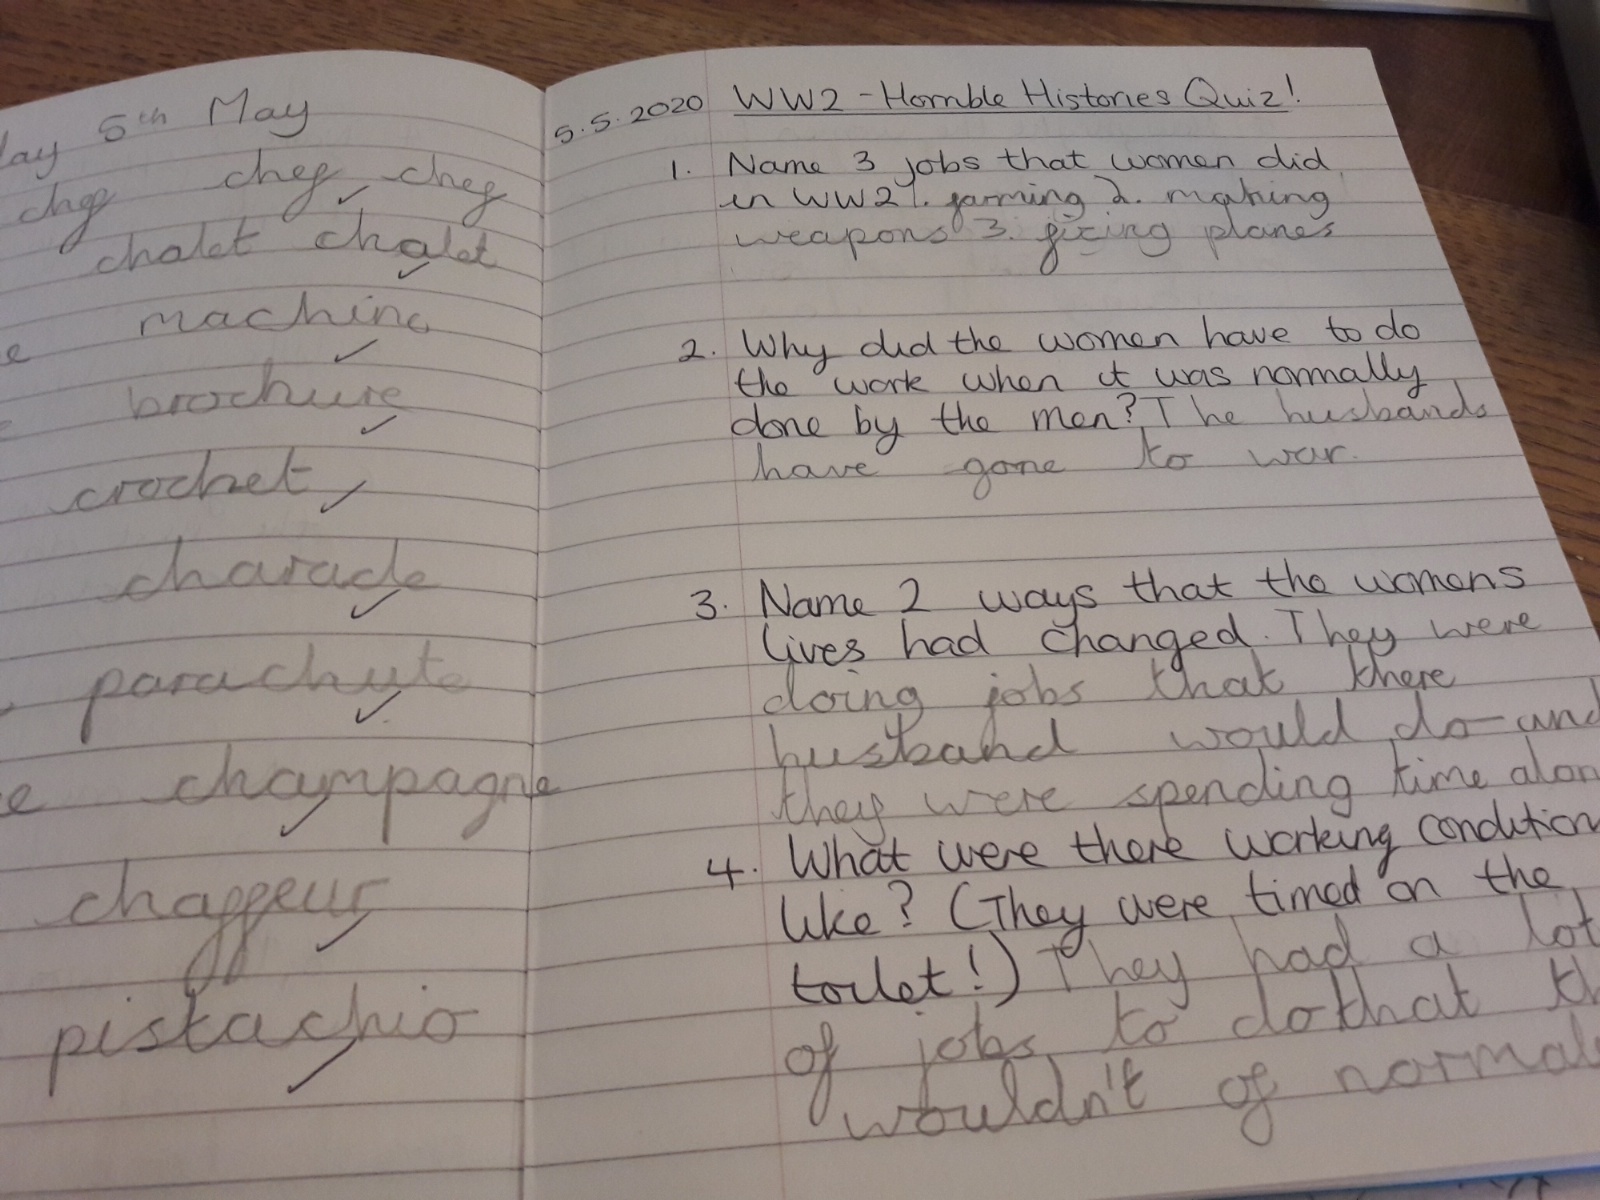 5th May
chef chef chef
chalet chalet
machine
brochure
crochet
charade
parachute
champagne
chauffeur
pistachio
5.5.2020 WW2 - Horrible Histories Quiz!
1. Name 3 jobs that women did
in WW2 1. farming 2. making
weapons 3. fixing planes
2. Why did the women have to do
the work when it was normally
done by the men? The husbands
have gone to war.
3. Name 2 ways that the womens
lives had changed. They were
doing jobs that there
husband would do and
they were spending time
4. What were there working
like? (They were timed on the
toilet!) They had a lot
of jobs to do that
wouldn't of